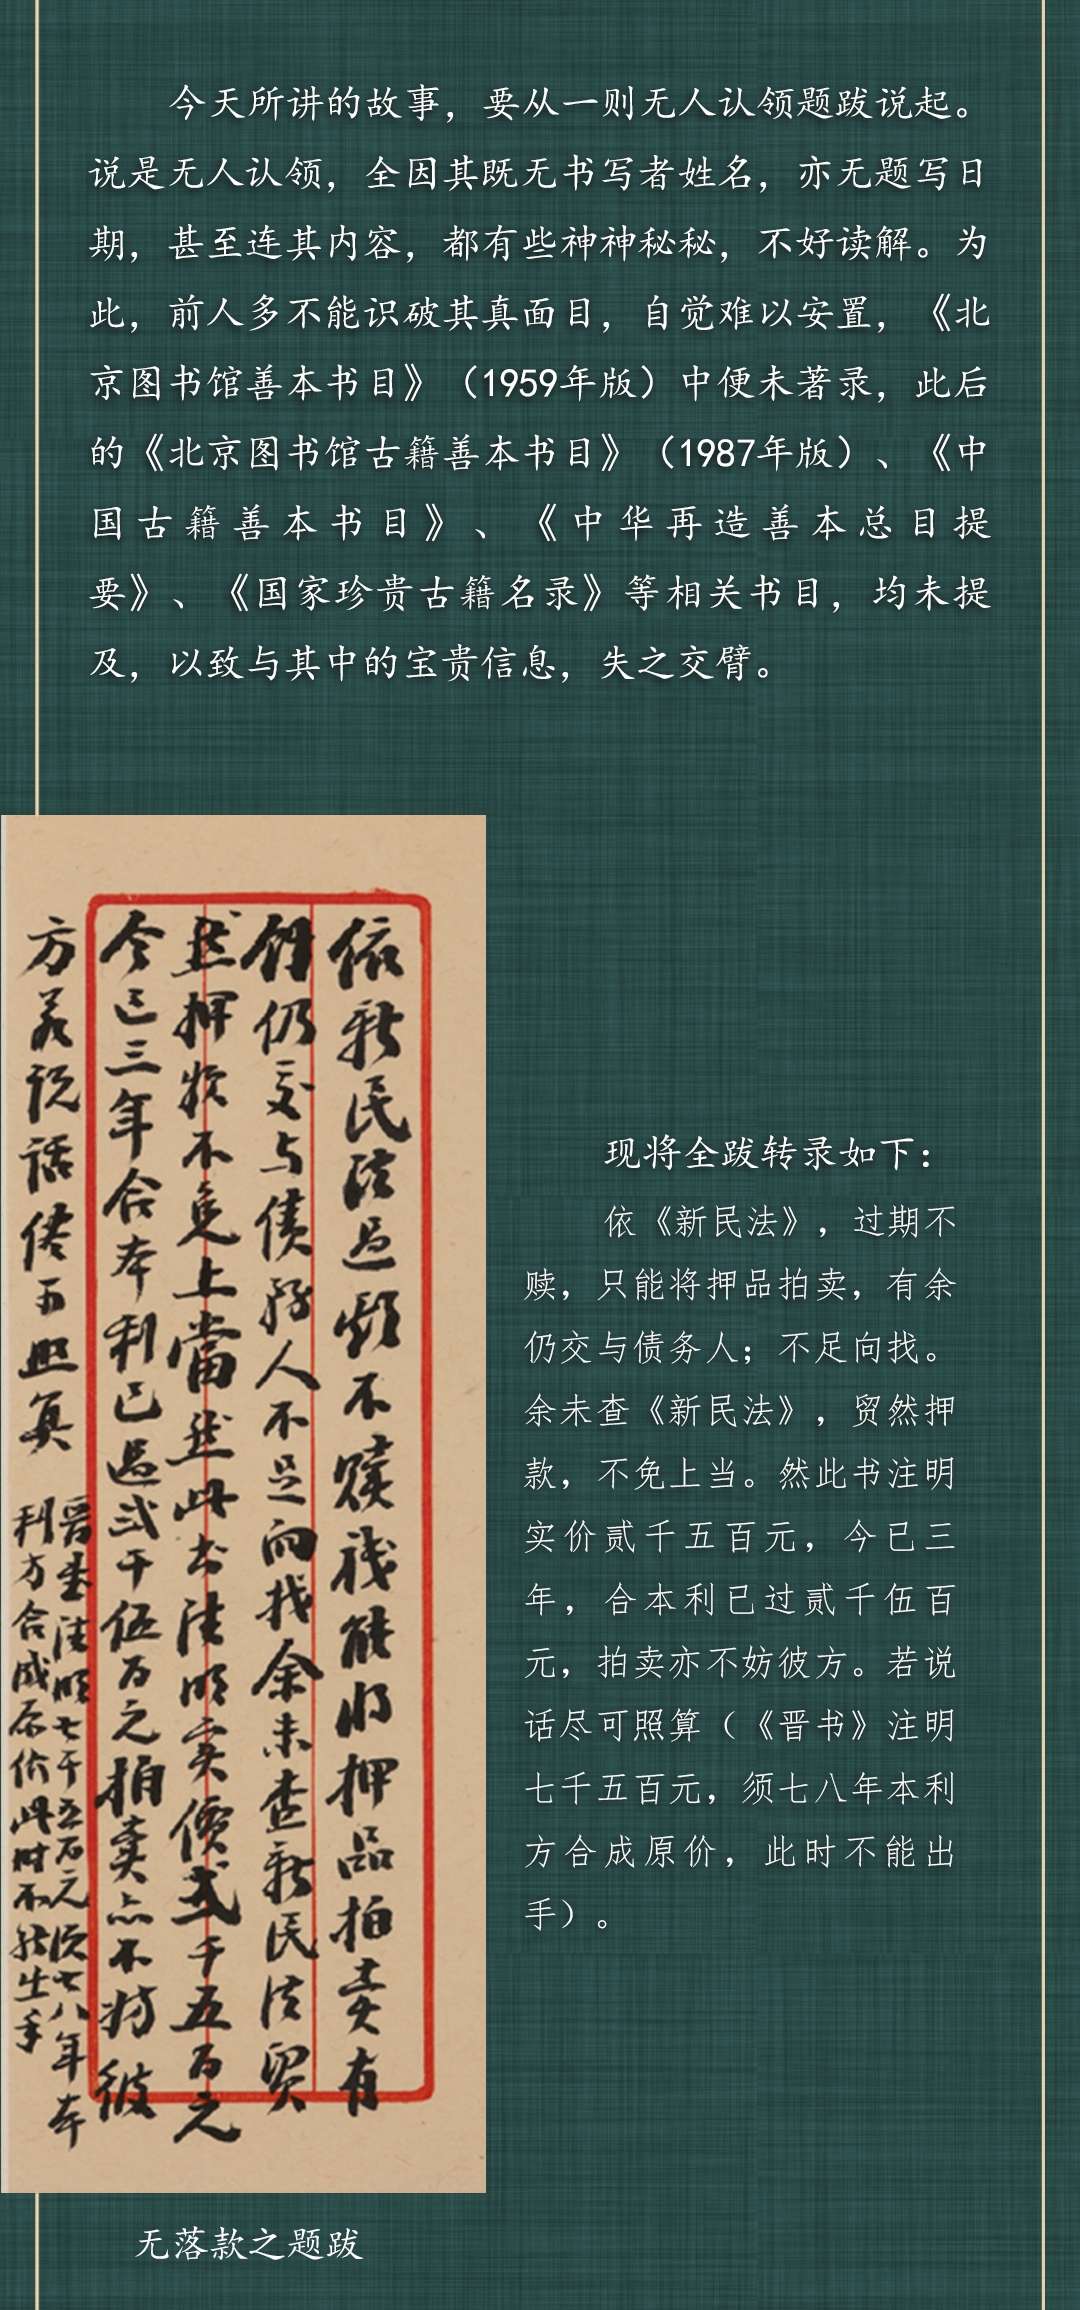 今天所讲的故事，要从一则无人认领题跋说起。
说是无人认领，全因其既无书写者姓名，亦无题写日
期，甚至连其内容，都有些神神秘秘，不好读解。为
此，前人多不能识破其真面目，自觉难以安置，《北
京图书馆善本书目》（1959年版）中便未著录，此后
的《北京图书馆古籍善本书目》（1987年版）、《中
国古籍善本书目》、《中华再造善本总目提
要》、《国家珍贵古籍名录》等相关书目，均未提
及，以致与其中的宝贵信息，失之交臂。
依新民法过期不赎祗能将押品拍卖有
余仍交与债务人不足向找余未查新民法贸
然押款不免上當然此书注明实價弍千五百元
今已三年合本利已過弍千伍百元拍卖亦不妨彼
方若说话侭可照算
晋書注明七千五百元须七八年本
利方合成原价此时不能出手
现将全跋转录如下：
依《新民法》，过期不
赎，只能将押品拍卖，有余
仍交与债务人；不足向找。
余未查《新民法》，贸然押
款，不免上当。然此书注明
实价贰千五百元，今已三
年，合本利已过贰千伍百
元，拍卖亦不妨彼方。若说
话尽可照算（《晋书》注明
七千五百元，须七八年本利
方合成原价，此时不能出
手）。
无落款之题跋